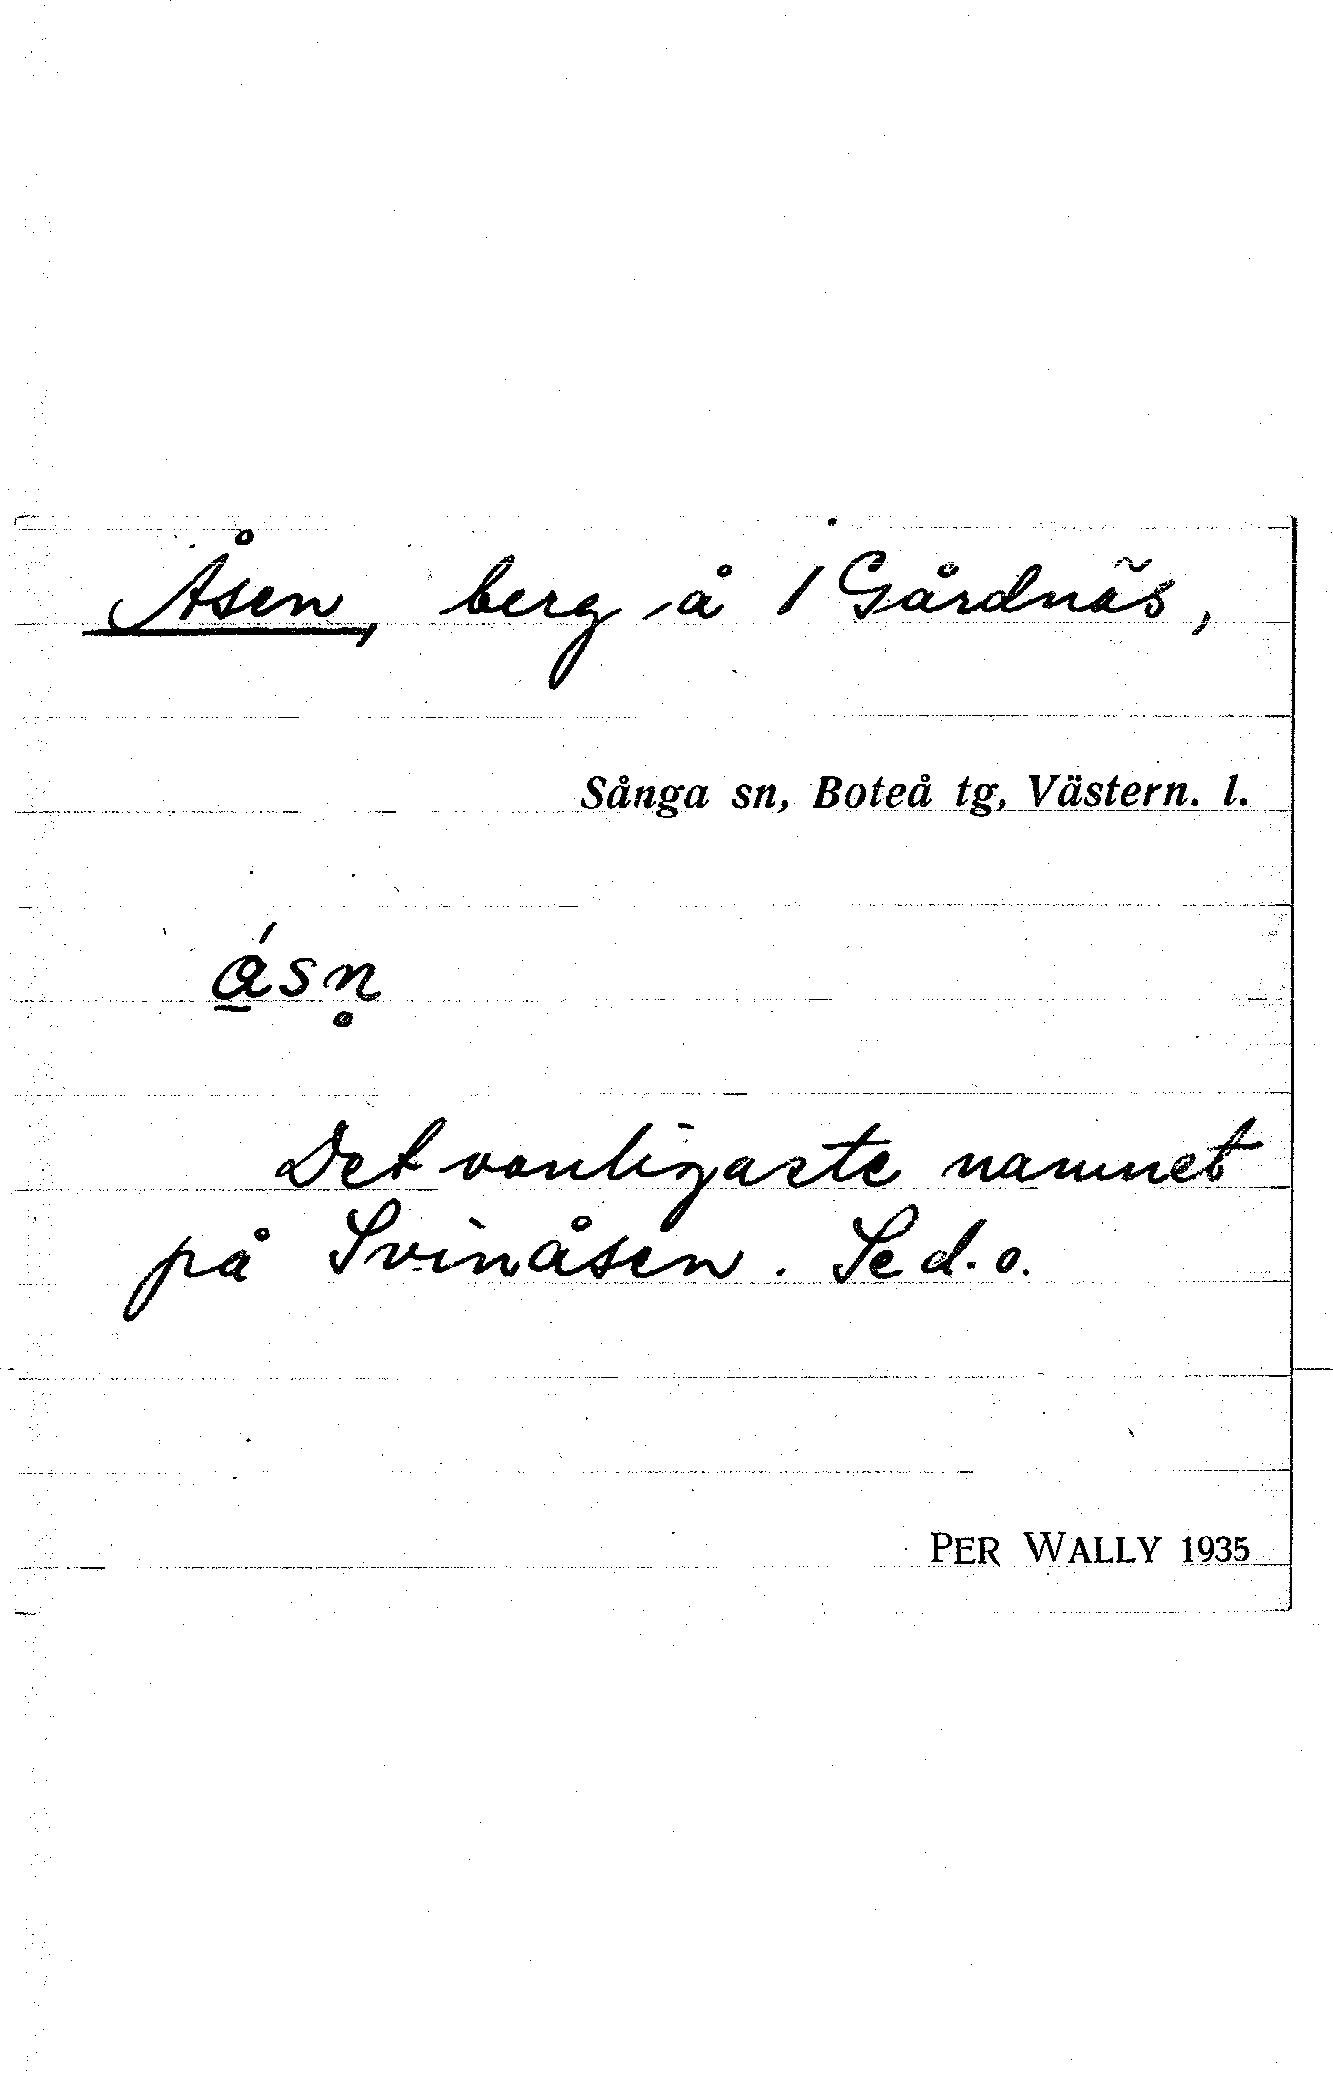 Åsen, berg å 1 Gårdnäs,
Sånga sn, Boteå tg, Västern. l.
á̲sn̥
Det vanligaste namnet
på Svinåsen. Se d.o.
PER WALLY 1935